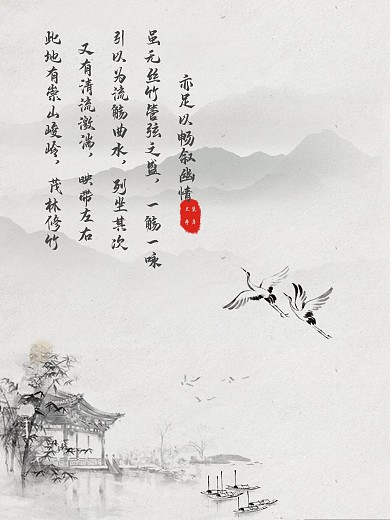 此地有崇山峻岭，茂林修竹
又有清流激湍，映带左右
引以为流觞曲水，列坐其次
虽无丝竹管弦之盛，一觞一咏
亦足以畅叙幽情